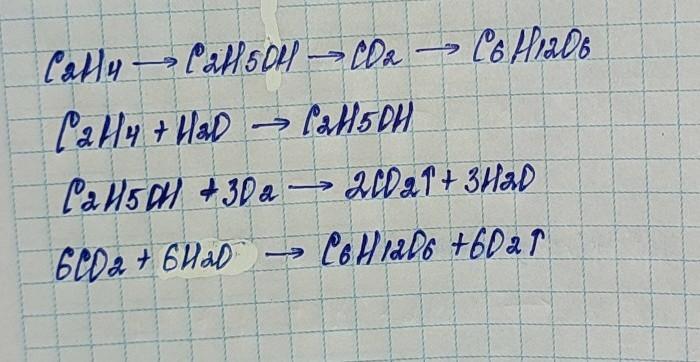 C2H4 → C2H5OH → CO2 → C6H12O6
C2H4 + H2O → C2H5OH
C2H5OH + 3O2 → 2CO2↑ + 3H2O
6CO2 + 6H2O → C6H12O6 + 6O2↑